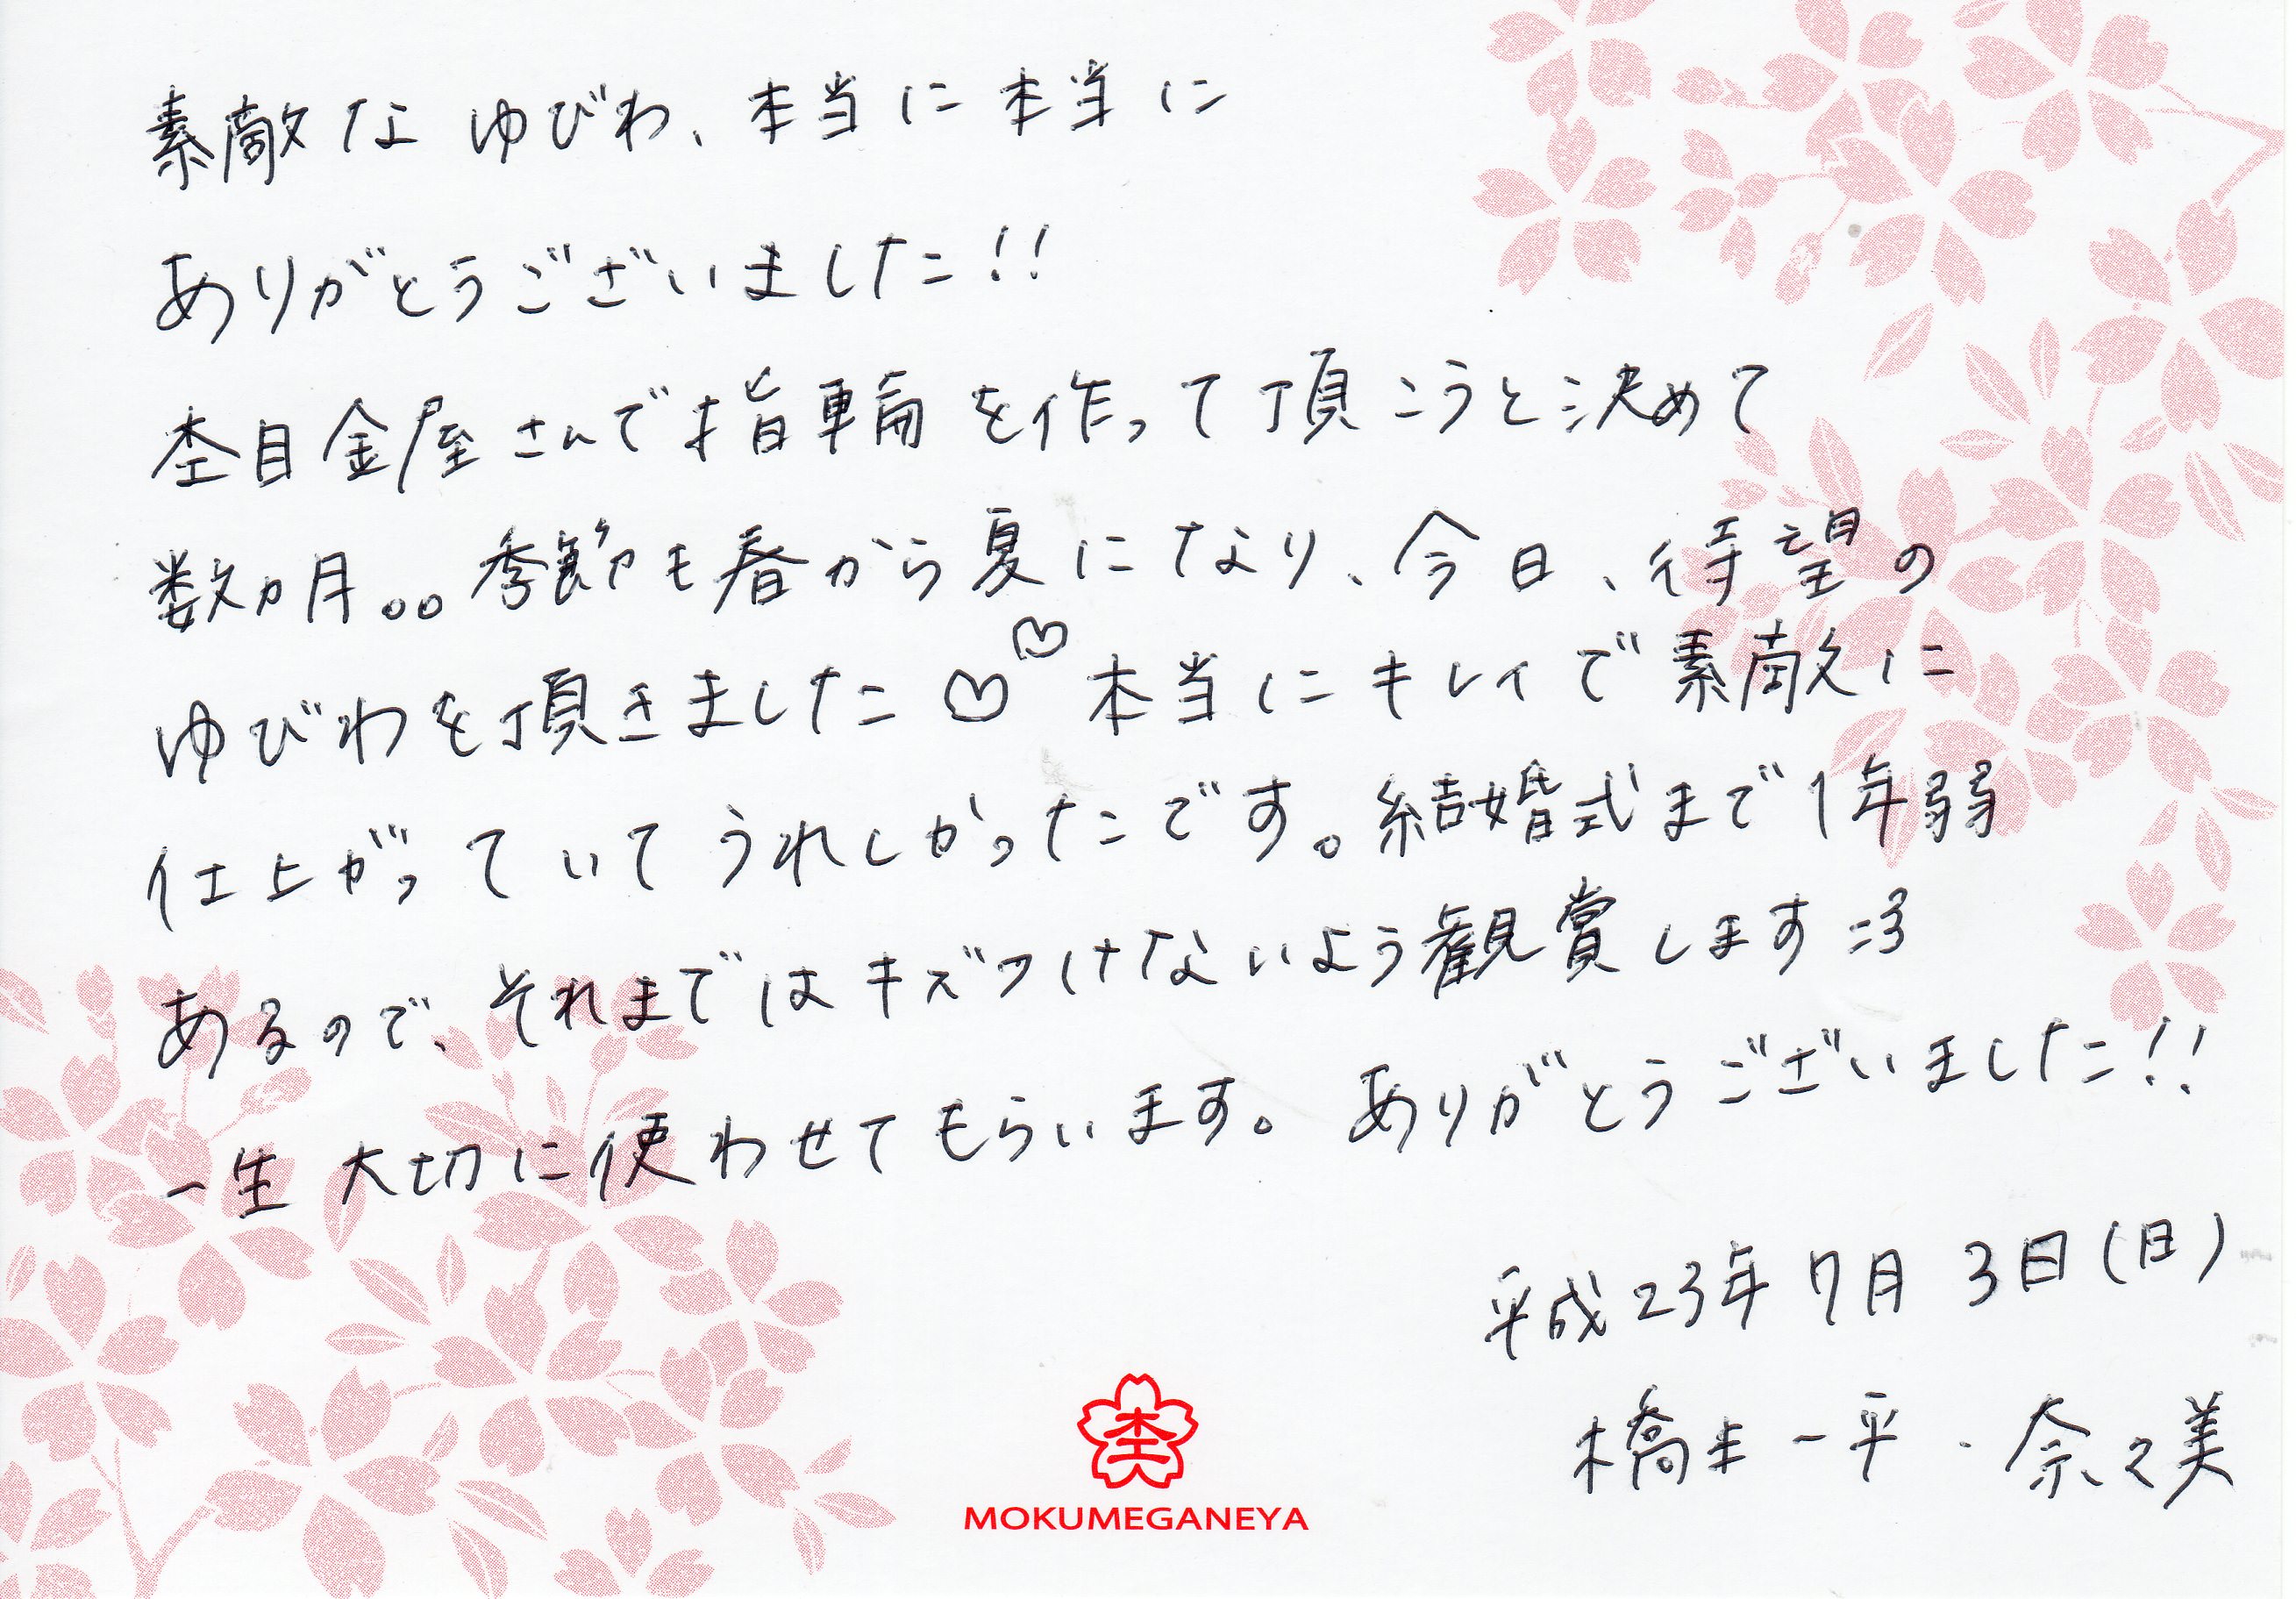 素敵な ゆびわ、本当に本当に
ありがとうございました!!
杢目金屋さんで指輪を作って頂こうと決めて
数ヵ月。。季節も春から夏になり、今日、待望の
ゆびわを頂きました♡♡ 本当にキレイで素敵に
仕上がっていてうれしかったです。結婚式まで1年弱
あるので、それまではキズつけないよう観賞します=3
一生大切に使わせてもらいます。ありがとうございました!!
平成23年7月3日(日)
橋本一平・奈々美
杢
MOKUMEGANEYA